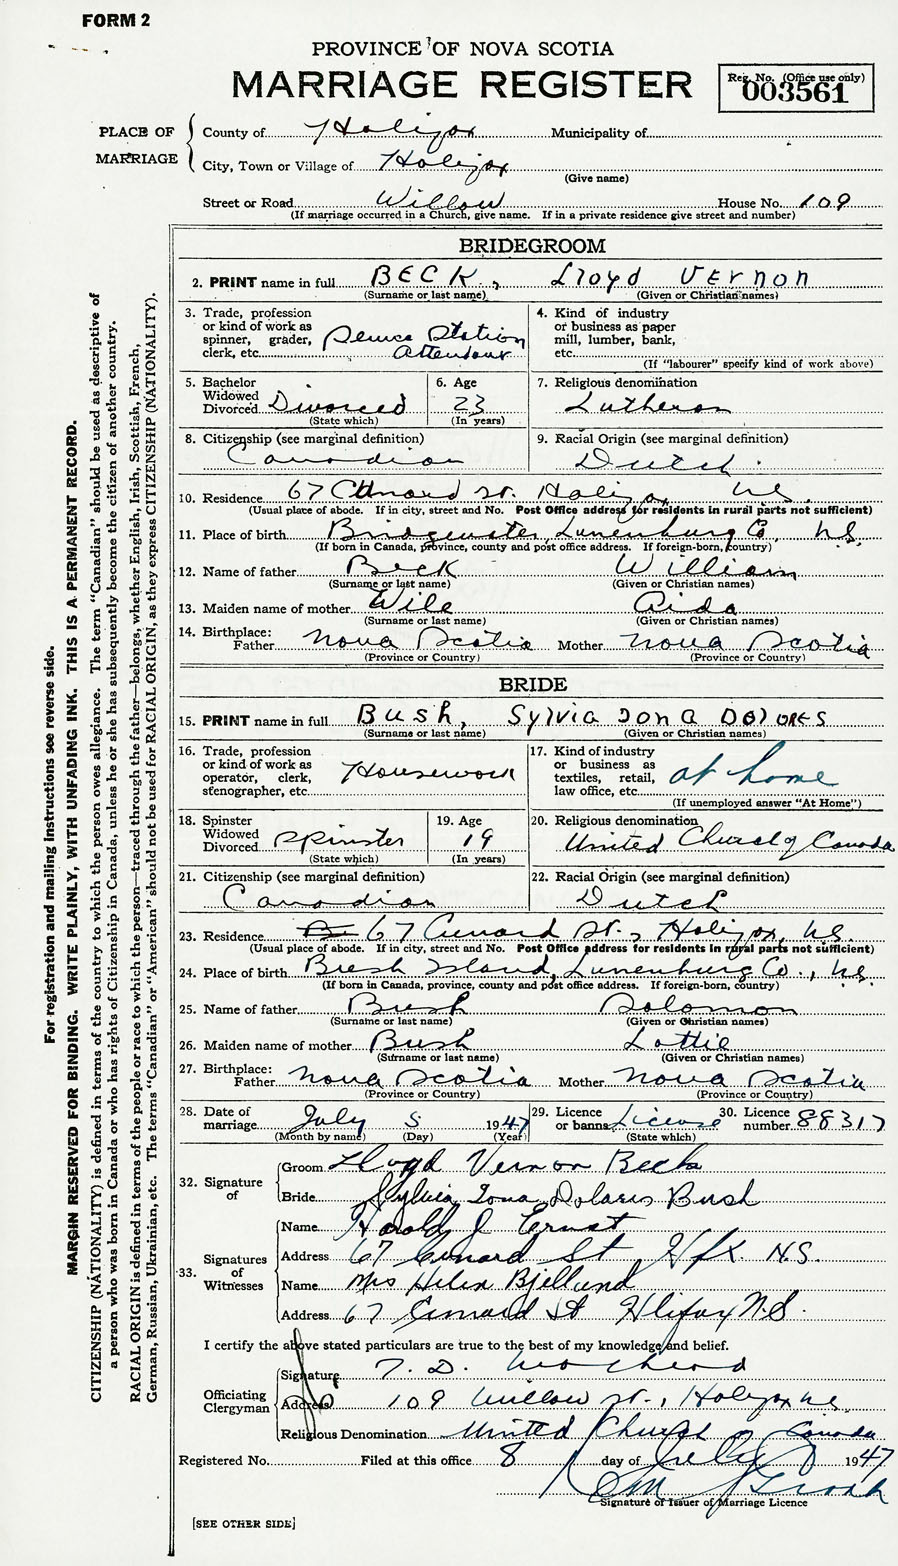 FORM 2
PROVINCE OF NOVA SCOTIA
MARRIAGE REGISTER
Reg. No. (Office use only)
003561
PLACE OF MARRIAGE
County of Halifax Municipality of
City, Town or Village of Halifax
(Give name)
Street or Road Willow House No. 109
(If marriage occurred in a Church, give name. If in a private residence give street and number)
BRIDEGROOM
2. PRINT name in full BECK, Lloyd Vernon
(Surname or last name) (Given or Christian names)
3. Trade, profession or kind of work as spinner, grader, clerk, etc. Service Station Attendant
4. Kind of industry or business as paper mill, lumber, bank, etc.
(If "labourer" specify kind of work above)
5. Bachelor Widowed Divorced Divorced
(State which)
6. Age 23
(In years)
7. Religious denomination
Lutheran
8. Citizenship (see marginal definition)
Canadian
9. Racial Origin (see marginal definition)
Dutch
10. Residence 67 Cunard St. Halifax N.S.
(Usual place of abode. If in city, street and No. Post Office address for residents in rural parts not sufficient)
11. Place of birth Bridgewater, Lunenburg Co, N.S.
(If born in Canada, province, county and post office address. If foreign-born, country)
12. Name of father Beck William
(Surname or last name) (Given or Christian names)
13. Maiden name of mother Wile Aida
(Surname or last name) (Given or Christian names)
14. Birthplace: Father Nova Scotia Mother Nova Scotia
(Province or Country) (Province or Country)
BRIDE
15. PRINT name in full Bush, Sylvia Iona Dolores
(Surname or last name) (Given or Christian names)
16. Trade, profession or kind of work as operator, clerk, stenographer, etc. Housework
17. Kind of industry or business as textiles, retail, law office, etc. at home
(If unemployed answer "At Home")
18. Spinster Widowed Divorced Spinster
(State which)
19. Age 19
(In years)
20. Religious denomination
United Church of Canada
21. Citizenship (see marginal definition)
Canadian
22. Racial Origin (see marginal definition)
Dutch
23. Residence 67 Cunard St., Halifax, N.S.
(Usual place of abode. If in city, street and No. Post Office address for residents in rural parts not sufficient)
24. Place of birth Bush Island, Lunenburg Co., N.S.
(If born in Canada, province, county and post office address. If foreign-born, country)
25. Name of father Bush Solomon
(Surname or last name) (Given or Christian names)
26. Maiden name of mother Bush Lottie
(Surname or last name) (Given or Christian names)
27. Birthplace: Father Nova Scotia Mother Nova Scotia
(Province or Country) (Province or Country)
28. Date of marriage July 5 1947
(Month by name) (Day) (Year)
29. Licence or banns License
(State which)
30. Licence number 88317
32. Signature of
Groom Lloyd Vernon Beck
Bride Sylvia Iona Dolaris Bush
33. Signatures of Witnesses
Name Harold J Ernst
Address 67 Cunard St Hfx N.S.
Name Mrs Helen Bjellund
Address 67 Cunard St Hlifax N.S.
I certify the above stated particulars are true to the best of my knowledge and belief.
Officiating Clergyman
Signature T. D.
Address 109 Willow St., Halifax N.S.
Religious Denomination United Church of Canada
Registered No. Filed at this office 8 day of July 1947
Signature of Issuer of Marriage Licence
[SEE OTHER SIDE]
For registration and mailing instructions see reverse side.
MARGIN RESERVED FOR BINDING. WRITE PLAINLY, WITH UNFADING INK. THIS IS A PERMANENT RECORD.
CITIZENSHIP (NATIONALITY) is defined in terms of the country to which the person owes allegiance. The term "Canadian" should be used as descriptive of
a person who was born in Canada or who has rights of Citizenship in Canada, unless he or she has subsequently become the citizen of another country.
RACIAL ORIGIN is defined in terms of the people or race to which the person—traced through the father—belongs, whether English, Irish, Scottish, French,
German, Russian, Ukrainian, etc. The terms "Canadian" or "American" should not be used for RACIAL ORIGIN, as they express CITIZENSHIP (NATIONALITY).